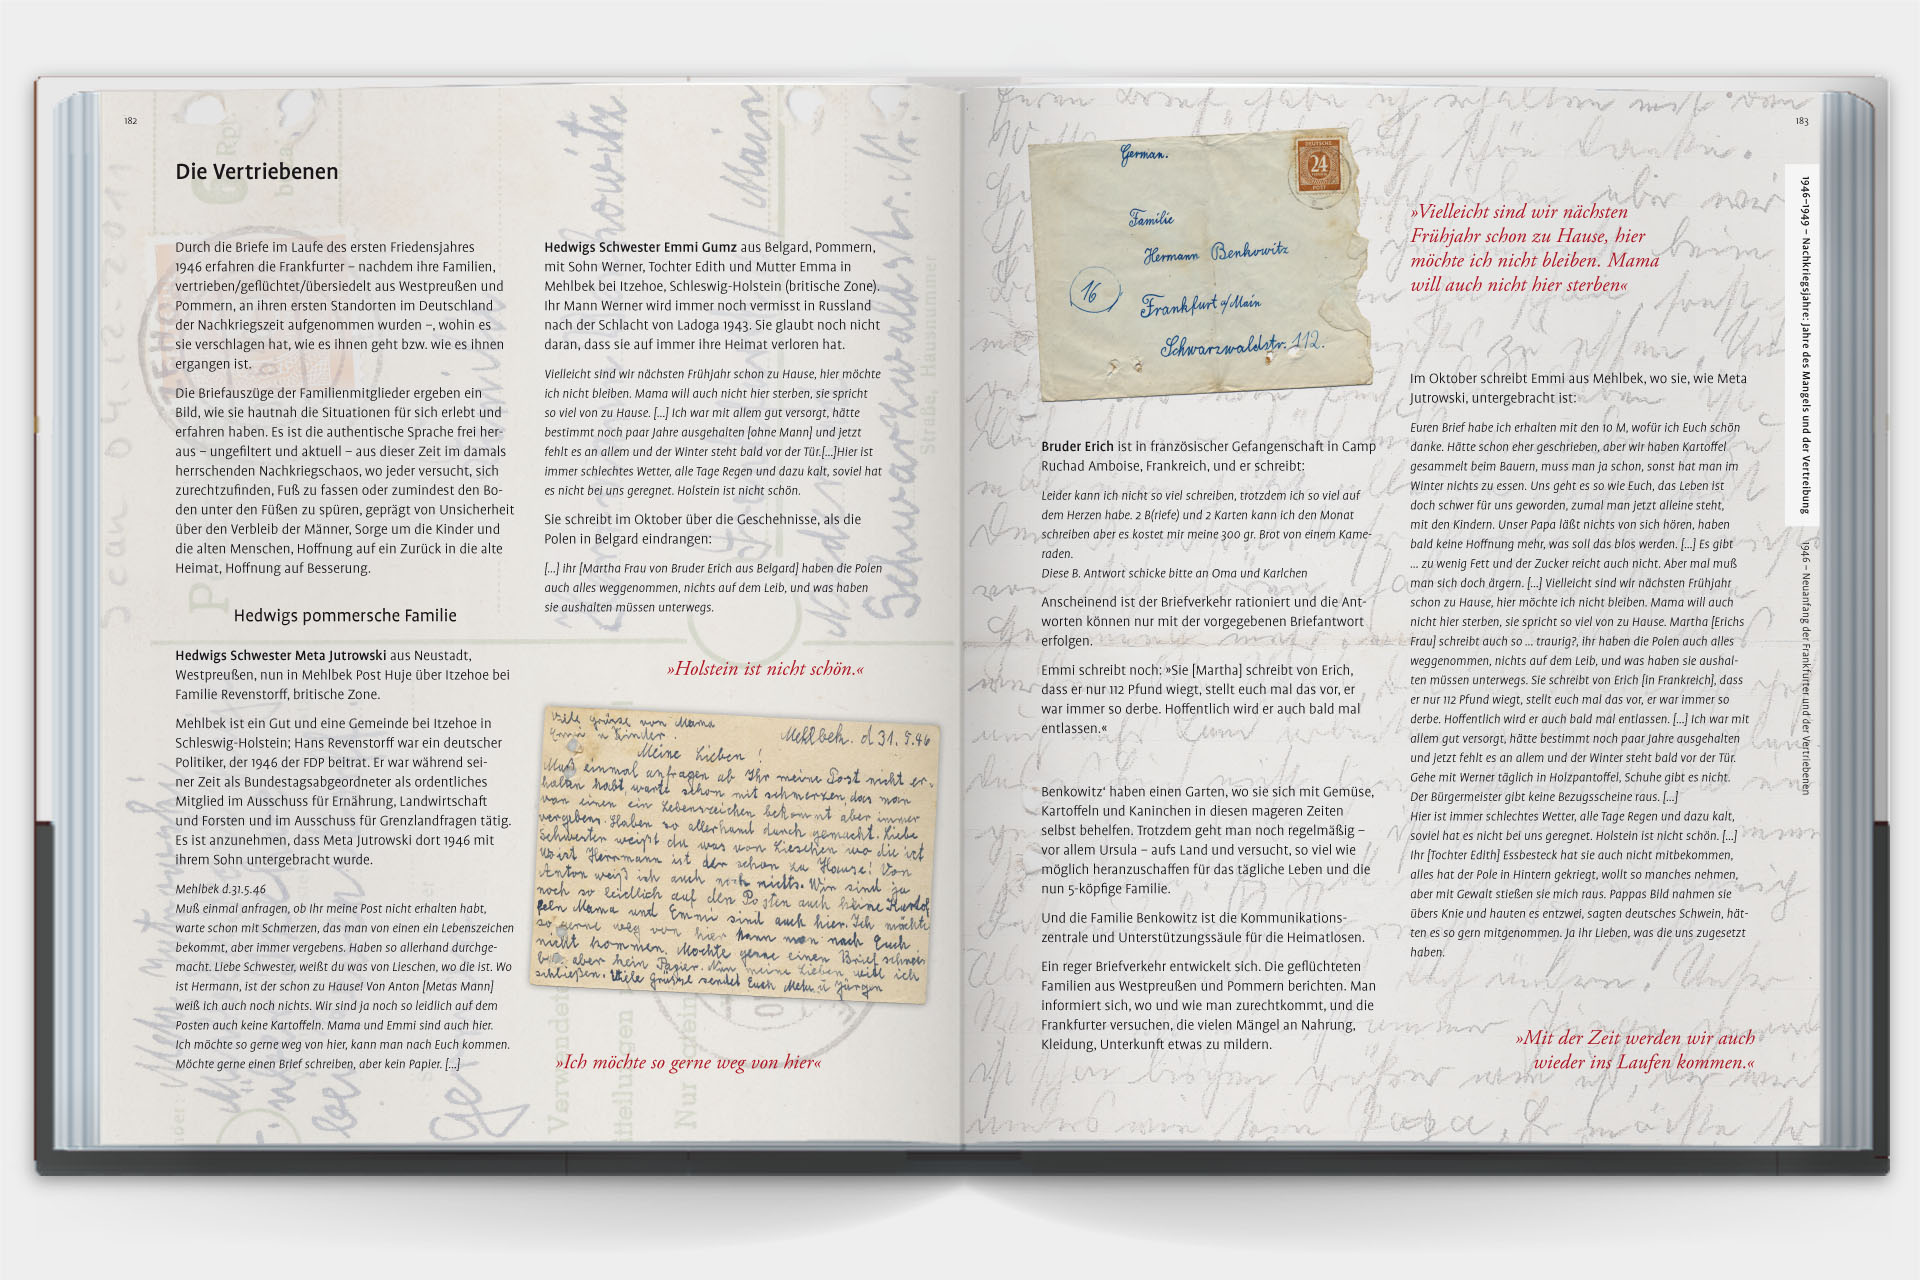 182
Die Vertriebenen
Durch die Briefe im Laufe des ersten Friedensjahres
1946 erfahren die Frankfurter – nachdem ihre Familien,
vertrieben/geflüchtet/übersiedelt aus Westpreußen und
Pommern, an ihren ersten Standorten im Deutschland
der Nachkriegszeit aufgenommen wurden –, wohin es
sie verschlagen hat, wie es ihnen geht bzw. wie es ihnen
ergangen ist.
Die Briefauszüge der Familienmitglieder ergeben ein
Bild, wie sie hautnah die Situationen für sich erlebt und
erfahren haben. Es ist die authentische Sprache frei her-
aus – ungefiltert und aktuell – aus dieser Zeit im damals
herrschenden Nachkriegschaos, wo jeder versucht, sich
zurechtzufinden, Fuß zu fassen oder zumindest den Bo-
den unter den Füßen zu spüren, geprägt von Unsicherheit
über den Verbleib der Männer, Sorge um die Kinder und
die alten Menschen, Hoffnung auf ein Zurück in die alte
Heimat, Hoffnung auf Besserung.
Hedwigs pommersche Familie
Hedwigs Schwester Meta Jutrowski aus Neustadt,
Westpreußen, nun in Mehlbek Post Huje über Itzehoe bei
Familie Revenstorff, britische Zone.
Mehlbek ist ein Gut und eine Gemeinde bei Itzehoe in
Schleswig-Holstein; Hans Revenstorff war ein deutscher
Politiker, der 1946 der FDP beitrat. Er war während sei-
ner Zeit als Bundestagsabgeordneter als ordentliches
Mitglied im Ausschuss für Ernährung, Landwirtschaft
und Forsten und im Ausschuss für Grenzlandfragen tätig.
Es ist anzunehmen, dass Meta Jutrowski dort 1946 mit
ihrem Sohn untergebracht wurde.
Mehlbek d.31.5.46
Muß einmal anfragen, ob Ihr meine Post nicht erhalten habt,
warte schon mit Schmerzen, das man von einen ein Lebenszeichen
bekommt, aber immer vergebens. Haben so allerhand durchge-
macht. Liebe Schwester, weißt du was von Lieschen, wo die ist. Wo
ist Hermann, ist der schon zu Hause! Von Anton [Metas Mann]
weiß ich auch noch nichts. Wir sind ja noch so leidlich auf dem
Posten auch keine Kartoffeln. Mama und Emmi sind auch hier.
Ich möchte so gerne weg von hier, kann man nach Euch kommen.
Möchte gerne einen Brief schreiben, aber kein Papier. [...]
Hedwigs Schwester Emmi Gumz aus Belgard, Pommern,
mit Sohn Werner, Tochter Edith und Mutter Emma in
Mehlbek bei Itzehoe, Schleswig-Holstein (britische Zone).
Ihr Mann Werner wird immer noch vermisst in Russland
nach der Schlacht von Ladoga 1943. Sie glaubt noch nicht
daran, dass sie auf immer ihre Heimat verloren hat.
Vielleicht sind wir nächsten Frühjahr schon zu Hause, hier möchte
ich nicht bleiben. Mama will auch nicht hier sterben, sie spricht
so viel von zu Hause. [...] Ich war mit allem gut versorgt, hätte
bestimmt noch paar Jahre ausgehalten [ohne Mann] und jetzt
fehlt es an allem und der Winter steht bald vor der Tür.[...]Hier ist
immer schlechtes Wetter, alle Tage Regen und dazu kalt, soviel hat
es nicht bei uns geregnet. Holstein ist nicht schön.
Sie schreibt im Oktober über die Geschehnisse, als die
Polen in Belgard eindrangen:
[...] ihr [Martha Frau von Bruder Erich aus Belgard] haben die Polen
auch alles weggenommen, nichts auf dem Leib, und was haben
sie aushalten müssen unterwegs.
»Holstein ist nicht schön.«
Viele Grüsse von Mama
Emmi u Kinder.
Mehlbek. d 31. 5.46
Meine Lieben!
Muß einmal anfragen ob Ihr meine Post nicht er-
halten habt, warte schon mit schmerzen, das man
von einen ein Lebenszeichen bekommt aber immer
vergebens. Haben so allerhand durch gemacht. Liebe
Schwester weißt du was von Lieschen wo die ist
Wo ist Herrmann ist der schon zu Hause! Von
Anton weiß ich auch noch nichts. Wir sind ja
noch so leidlich auf den Posten auch keine Kartof
feln Mama und Emmi sind auch hier. Ich möchte
so gerne weg von hier kann man nach Euch
nicht kommen. Möchte gerne einen Brief schrei
ben, aber kein Papier. Nun meine Lieben will ich
schließen. Viele Grüsse sendet Euch Meta u Jürgen
»Ich möchte so gerne weg von hier«
183
German.
DEUTSCHE
24
POST
Familie
Hermann Benkowitz
16
Frankfurt a/Main
Schwarzwaldstr. 112.
Bruder Erich ist in französischer Gefangenschaft in Camp
Ruchad Amboise, Frankreich, und er schreibt:
Leider kann ich nicht so viel schreiben, trotzdem ich so viel auf
dem Herzen habe. 2 B(riefe) und 2 Karten kann ich den Monat
schreiben aber es kostet mir meine 300 gr. Brot von einem Kame-
raden.
Diese B. Antwort schicke bitte an Oma und Karlchen
Anscheinend ist der Briefverkehr rationiert und die Ant-
worten können nur mit der vorgegebenen Briefantwort
erfolgen.
Emmi schreibt noch: »Sie [Martha] schreibt von Erich,
dass er nur 112 Pfund wiegt, stellt euch mal das vor, er
war immer so derbe. Hoffentlich wird er auch bald mal
entlassen.«
Benkowitz‘ haben einen Garten, wo sie sich mit Gemüse,
Kartoffeln und Kaninchen in diesen mageren Zeiten
selbst behelfen. Trotzdem geht man noch regelmäßig –
vor allem Ursula – aufs Land und versucht, so viel wie
möglich heranzuschaffen für das tägliche Leben und die
nun 5-köpfige Familie.
Und die Familie Benkowitz ist die Kommunikations-
zentrale und Unterstützungssäule für die Heimatlosen.
Ein reger Briefverkehr entwickelt sich. Die geflüchteten
Familien aus Westpreußen und Pommern berichten. Man
informiert sich, wo und wie man zurechtkommt, und die
Frankfurter versuchen, die vielen Mängel an Nahrung,
Kleidung, Unterkunft etwas zu mildern.
»Vielleicht sind wir nächsten
Frühjahr schon zu Hause, hier
möchte ich nicht bleiben. Mama
will auch nicht hier sterben«
Im Oktober schreibt Emmi aus Mehlbek, wo sie, wie Meta
Jutrowski, untergebracht ist:
Euren Brief habe ich erhalten mit den 10 M, wofür ich Euch schön
danke. Hätte schon eher geschrieben, aber wir haben Kartoffel
gesammelt beim Bauern, muss man ja schon, sonst hat man im
Winter nichts zu essen. Uns geht es so wie Euch, das Leben ist
doch schwer für uns geworden, zumal man jetzt alleine steht,
mit den Kindern. Unser Papa läßt nichts von sich hören, haben
bald keine Hoffnung mehr, was soll das blos werden. [...] Es gibt
... zu wenig Fett und der Zucker reicht auch nicht. Aber mal muß
man sich doch ärgern. [...] Vielleicht sind wir nächsten Frühjahr
schon zu Hause, hier möchte ich nicht bleiben. Mama will auch
nicht hier sterben, sie spricht so viel von zu Hause. Martha [Erichs
Frau] schreibt auch so ... traurig?, ihr haben die Polen auch alles
weggenommen, nichts auf dem Leib, und was haben sie aushal-
ten müssen unterwegs. Sie schreibt von Erich [in Frankreich], dass
er nur 112 Pfund wiegt, stellt euch mal das vor, er war immer so
derbe. Hoffentlich wird er auch bald mal entlassen. [...] Ich war mit
allem gut versorgt, hätte bestimmt noch paar Jahre ausgehalten
und jetzt fehlt es an allem und der Winter steht bald vor der Tür.
Gehe mit Werner täglich in Holzpantoffel, Schuhe gibt es nicht.
Der Bürgermeister gibt keine Bezugsscheine raus. [...]
Hier ist immer schlechtes Wetter, alle Tage Regen und dazu kalt,
soviel hat es nicht bei uns geregnet. Holstein ist nicht schön. [...]
Ihr [Tochter Edith] Essbesteck hat sie auch nicht mitbekommen,
alles hat der Pole in Hintern gekriegt, wollt so manches nehmen,
aber mit Gewalt stießen sie mich raus. Pappas Bild nahmen sie
übers Knie und hauten es entzwei, sagten deutsches Schwein, hät-
ten es so gern mitgenommen. Ja ihr Lieben, was die uns zugesetzt
haben.
»Mit der Zeit werden wir auch
wieder ins Laufen kommen.«
1946–1949 – Nachkriegsjahre: Jahre des Mangels und der Vertreibung
1946 – Neuanfang der Frankfurter und der Vertriebenen